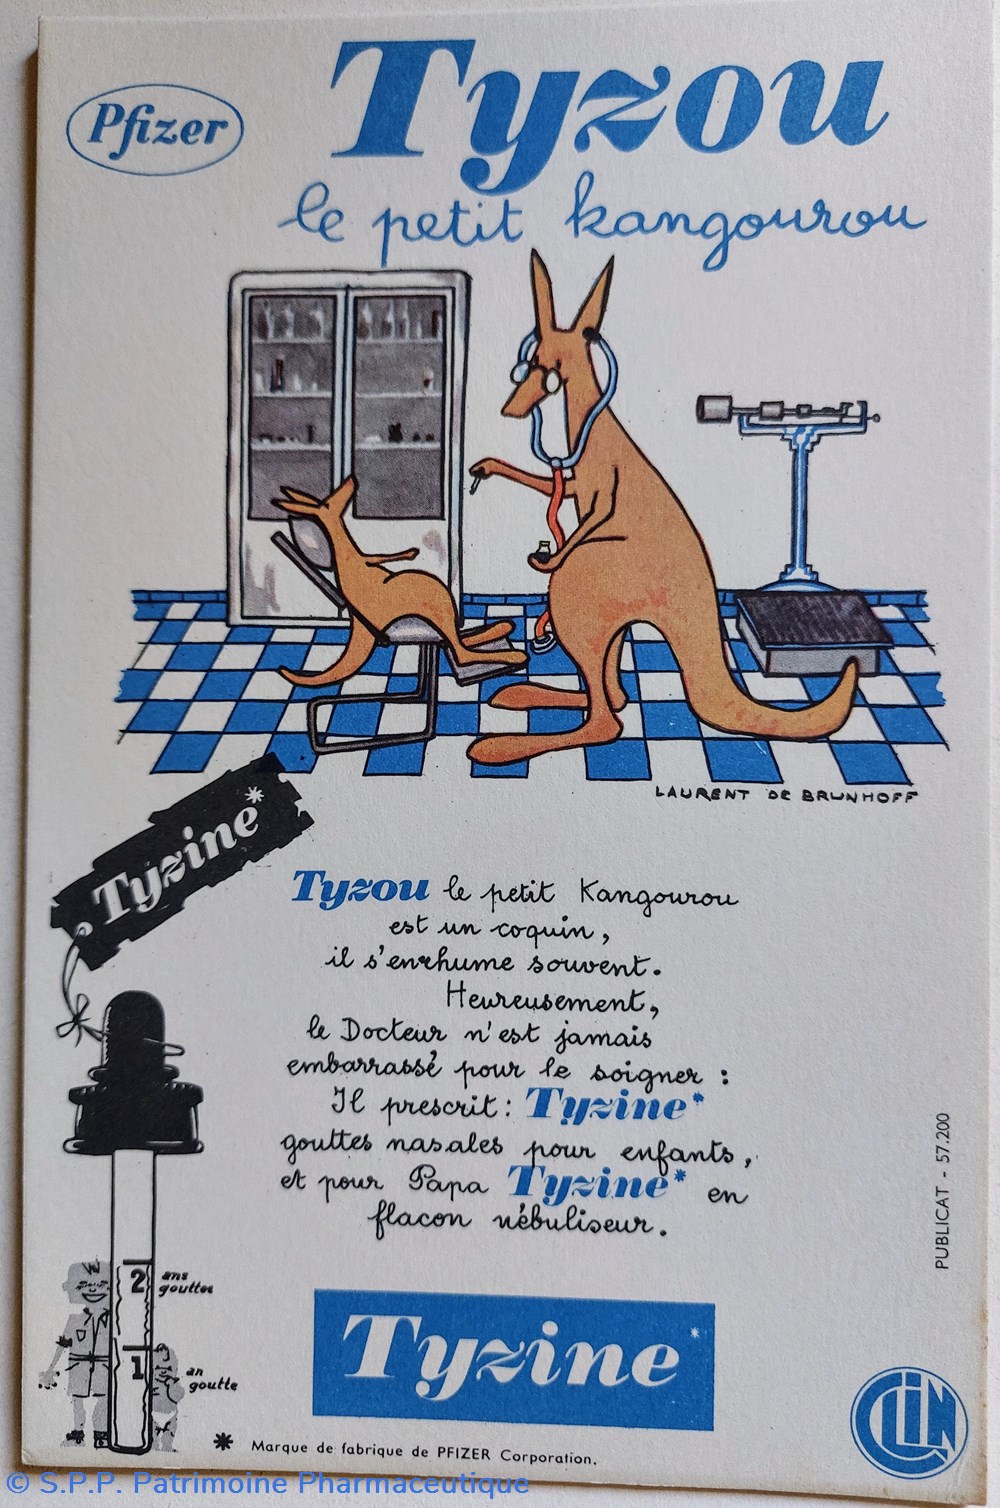 Pfizer
Tyzou
le petit kangourou
LAURENT DE BRUNHOFF
Tyzine*
Tyzou le petit Kangourou
est un coquin,
il s'enrhume souvent.
Heureusement,
le Docteur n'est jamais
embarrassé pour le soigner :
Il prescrit : Tyzine*
gouttes nasales pour enfants,
et pour Papa Tyzine* en
flacon nébuliseur.
2 ans
gouttes
1 an
goutte
PUBLICAT - 57.200
Tyzine*
CLIN
* Marque de fabrique de PFIZER Corporation.
© S.P.P. Patrimoine Pharmaceutique